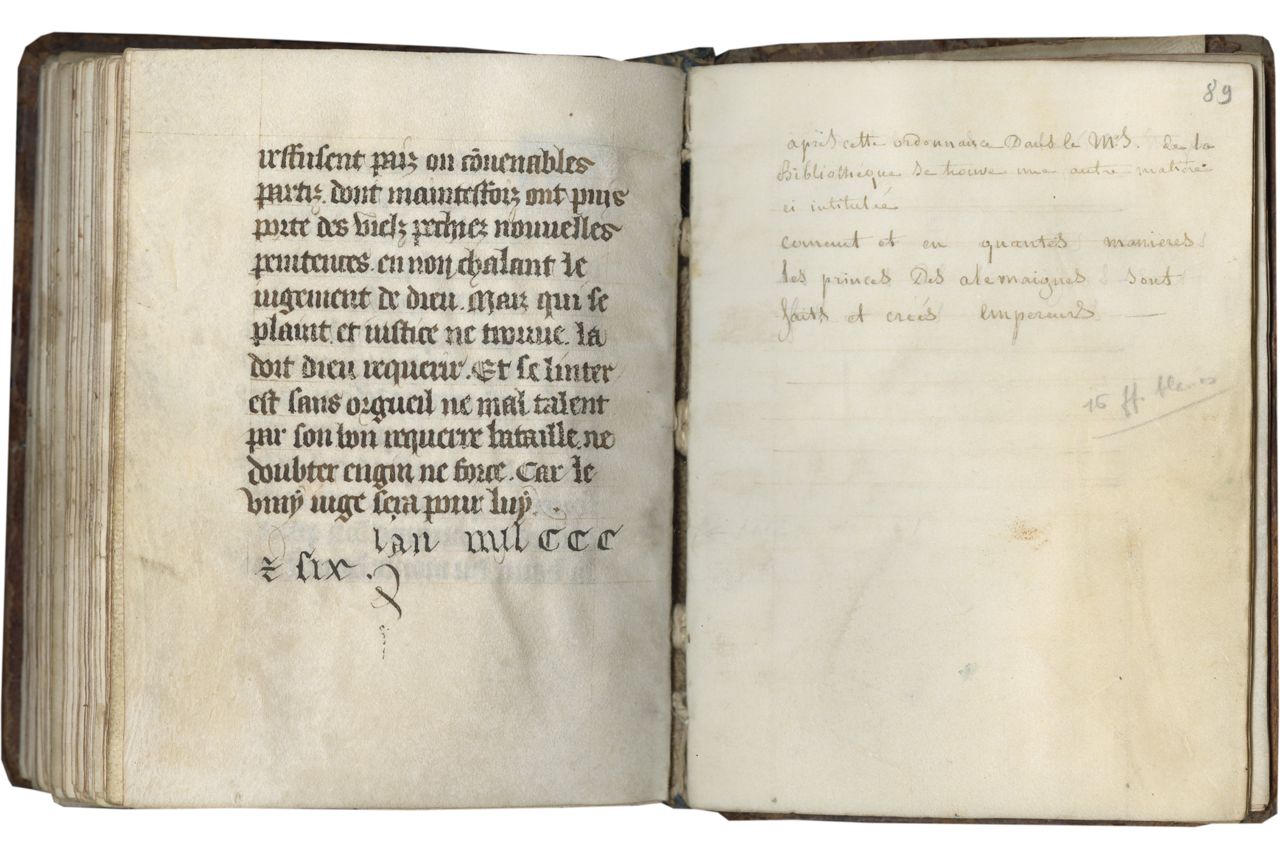 reffusent paix ou cōuenables
partiz. dont maintesfoiz ont puis
porte des vielz pechiez nouuelles
penitences. en non chalant le
iugement de dieu. Maiz qui se
plaint et iustice ne trouue. la
doit dieu requerir. Et se linter
est sans orgueil ne mal talent
par son bon requerre bataille. ne
doubter engin ne force. Car le
vray iuge sera pour luy.
lan mil CCC
⁊ six.
89
après cette ordonnance Dans le Mrs. de la
Bibliothèque se trouve une autre matière
ci intitulée
comment et en quantes manieres
les princes Des alemaignes sont
faits et créés Empereurs
16 ff. blancs